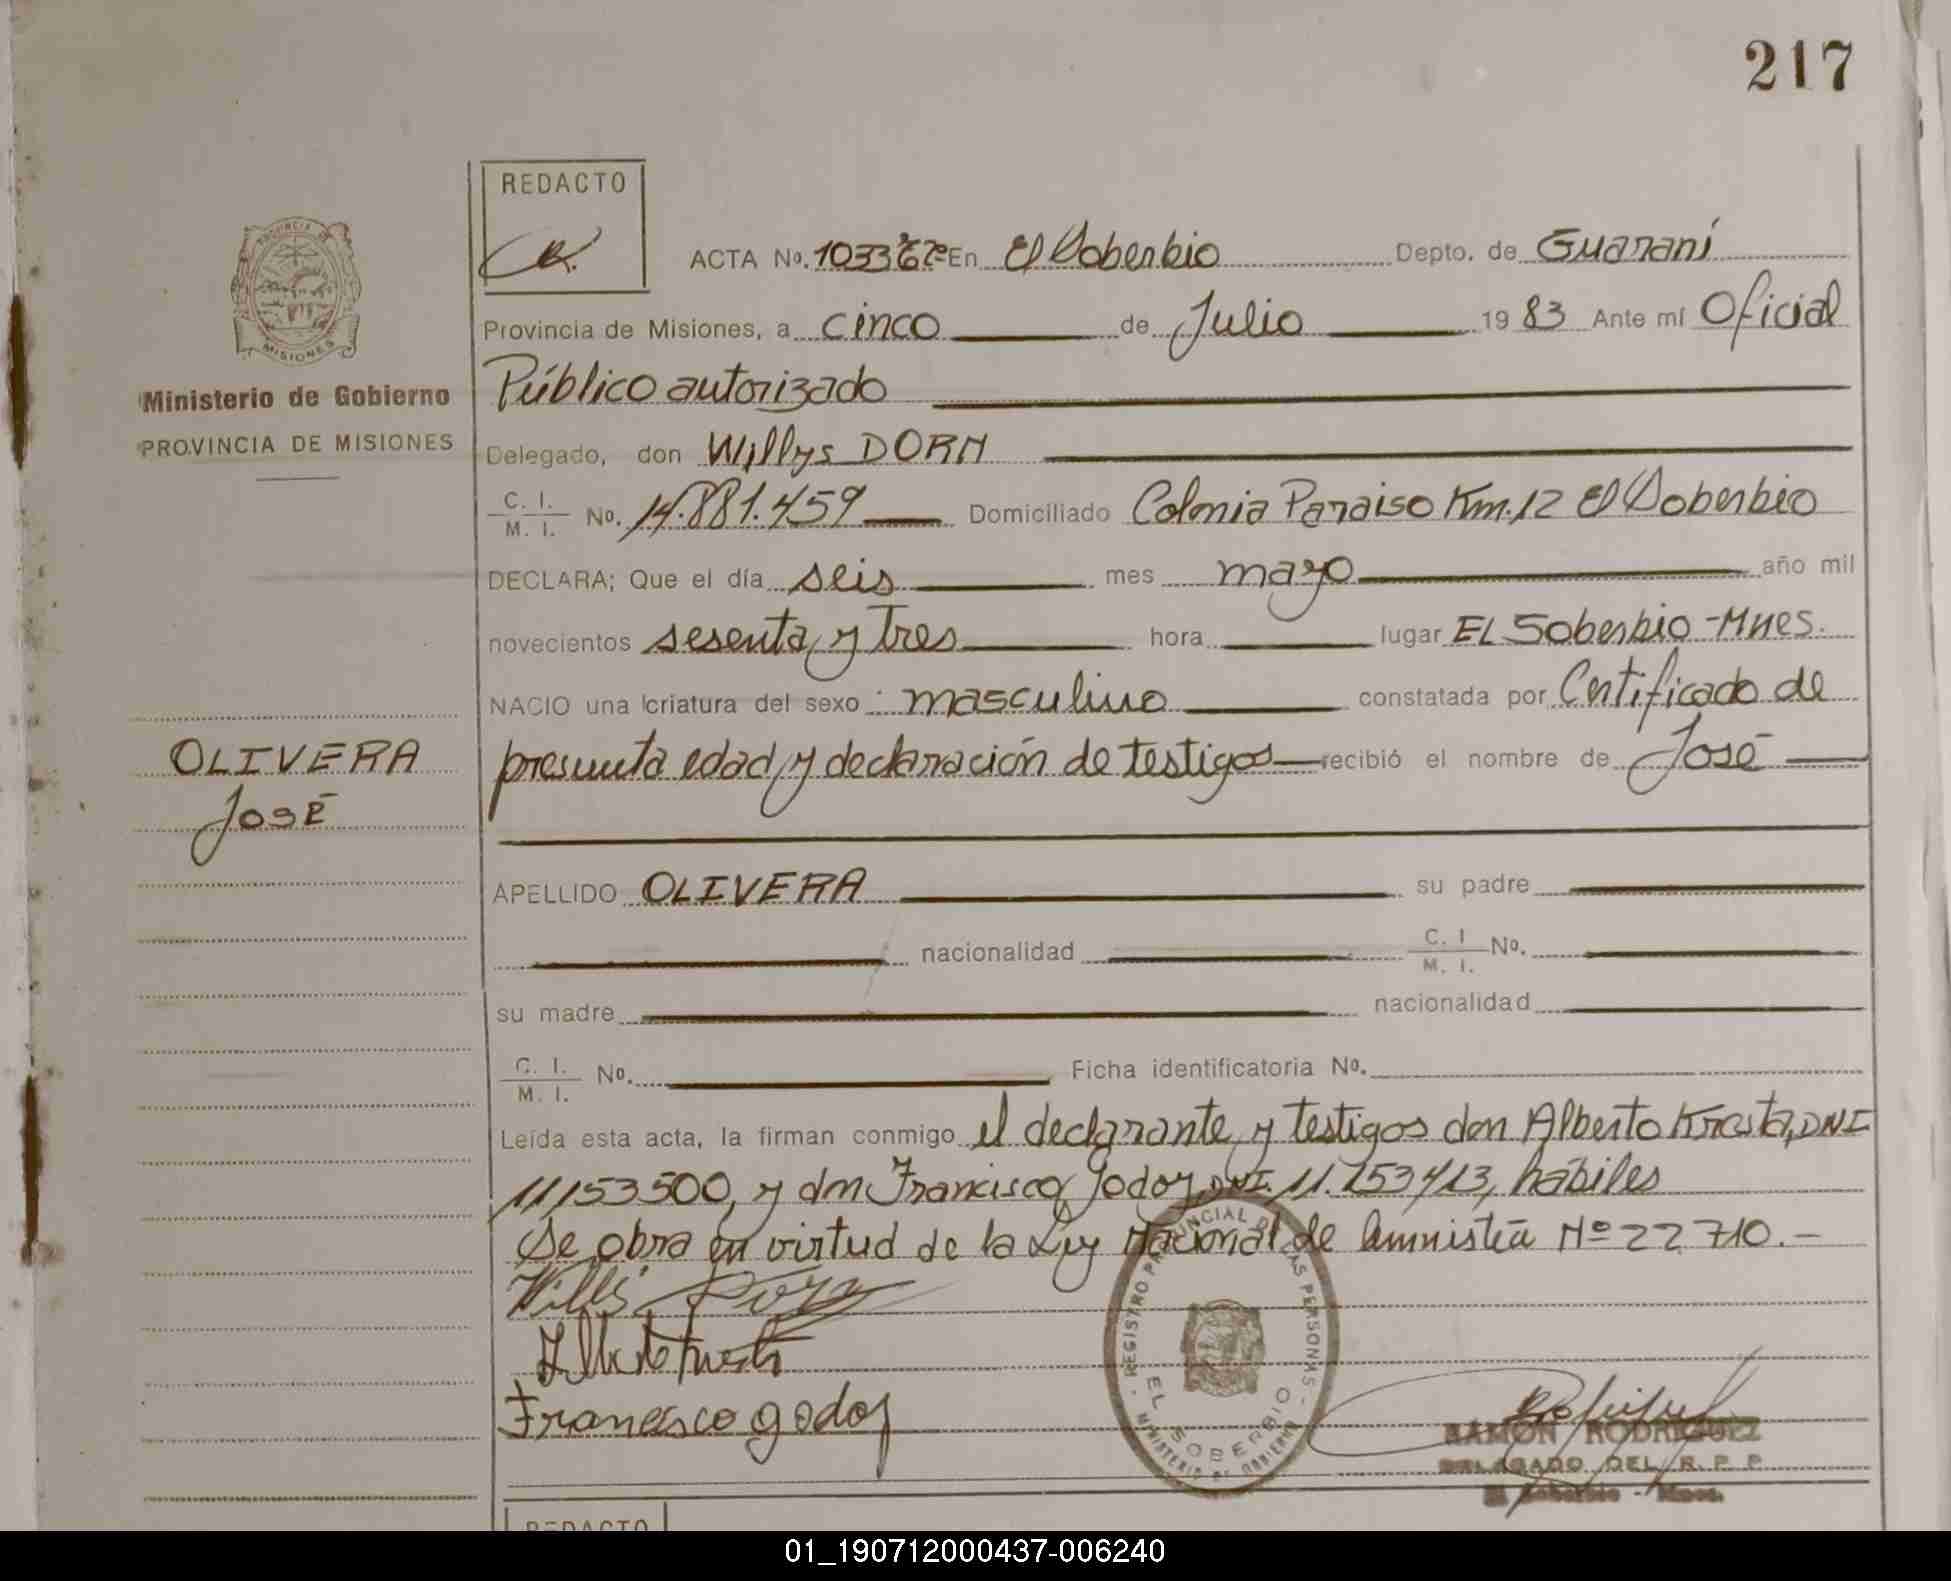 217
REDACTO
PROVINCIA DE
MISIONES
Ministerio de Gobierno
PROVINCIA DE MISIONES
ACTA Nº. 1033 En El Soberbio Depto. de Guaraní
Provincia de Misiones, a cinco de Julio 1983 Ante mí Oficial
Público autorizado
Delegado, don Willys DORN
C. I. / M. I. Nº. 14.881.459 Domiciliado Colonia Paraiso Km. 12 El Soberbio
DECLARA; Que el día seis mes mayo año mil
novecientos sesenta y tres hora lugar EL Soberbio - Mnes.
NACIO una criatura del sexo: masculino constatada por Certificado de
presunta edad y declaración de testigos recibió el nombre de José
OLIVERA
José
APELLIDO OLIVERA su padre
nacionalidad C. I / M. I. Nº.
su madre nacionalidad
C. I. / M. I. Nº. Ficha identificatoria Nº.
Leída esta acta, la firman conmigo el declarante y testigos don Alberto Krusta, DNI
11153500, y don Francisco Godoy, DNI. 11.153413, hábiles
Se obra en virtud de la Ley Nacional de Amnistía Nº 22710.-
Willis Dorn
Alberto Krusta
Francisco godoy
REGISTRO PROVINCIAL DE LAS PERSONAS - MINISTERIO DE GOBIERNO -
EL SOBERBIO
RAMON RODRIGUEZ
DELEGADO DEL R. P. P.
El Soberbio - Mnes.
REDACTO
01_190712000437-006240